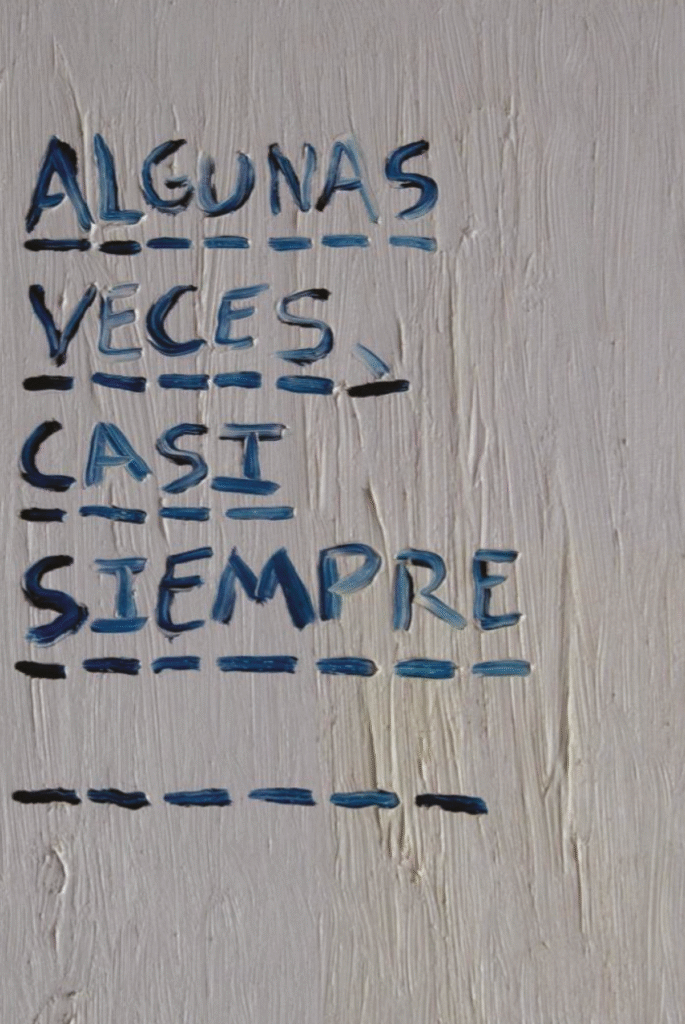 ALGUNAS
VECES,
CASI
SIEMPRE